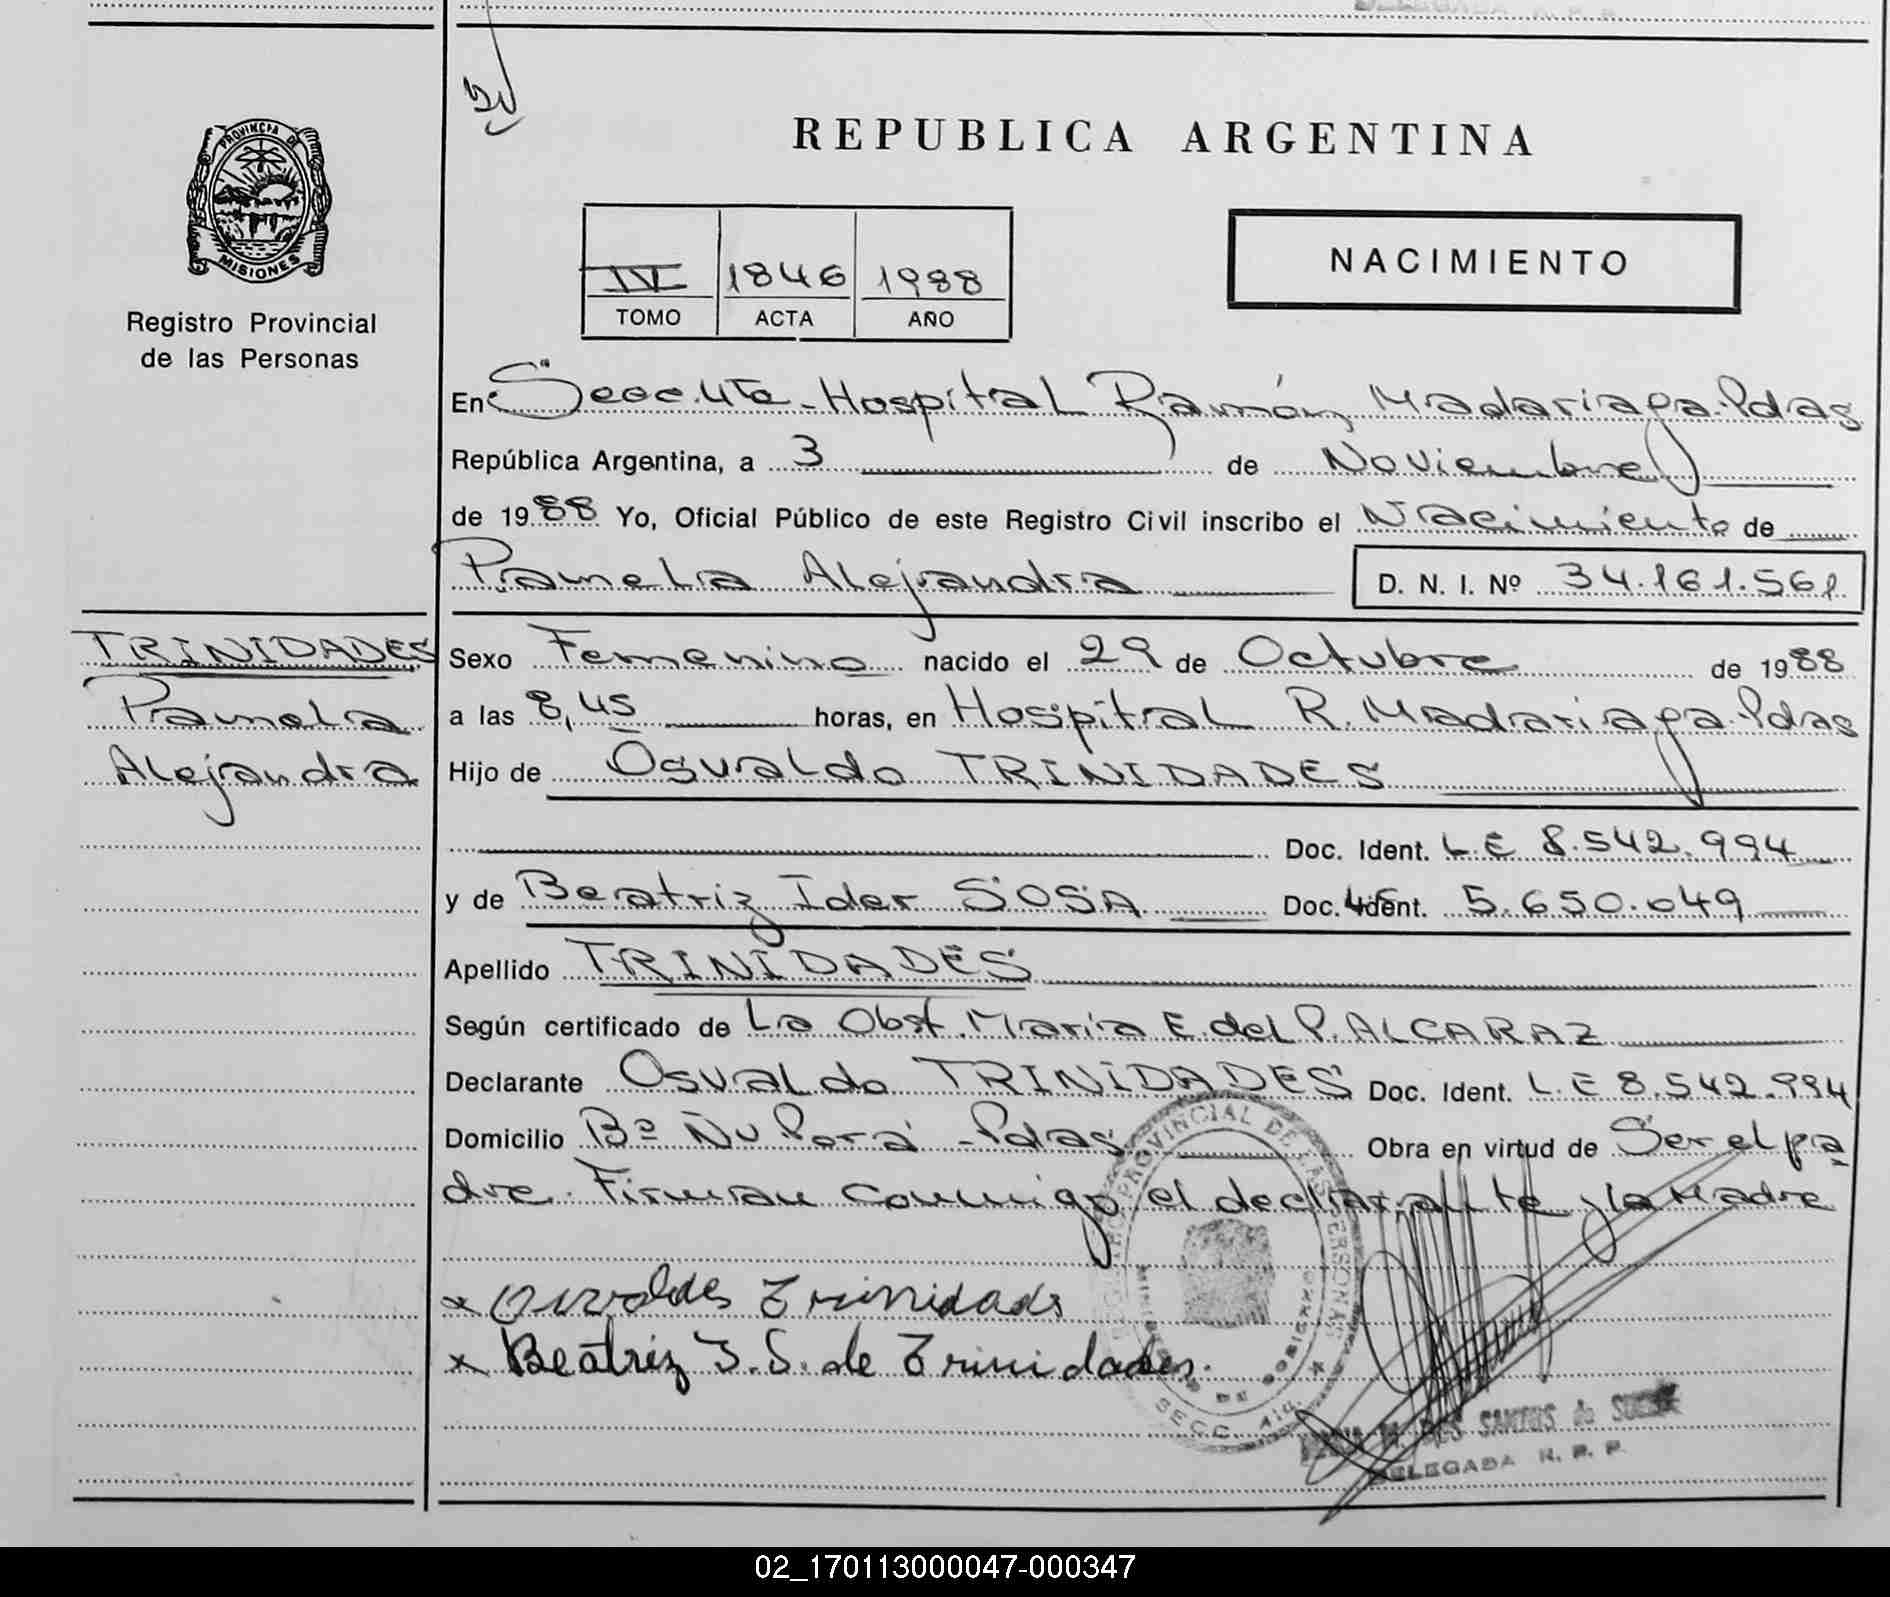 DELEGADA R. P. P.
REPUBLICA ARGENTINA
PROVINCIA DE
MISIONES
Registro Provincial
de las Personas
IV 1846 1988
TOMO ACTA AÑO
NACIMIENTO
En Secc. 4ta - Hospital Ramón Madariaga. Pdas
República Argentina, a 3 de Noviembre
de 1988 Yo, Oficial Público de este Registro Civil inscribo el Nacimiento de
Pamela Alejandra D. N. I. Nº 34.161.561
TRINIDADES
Pamela
Alejandra
Sexo Femenino nacido el 29 de Octubre de 1988
a las 8,45 horas, en Hospital R. Madariaga. Pdas
Hijo de Osvaldo TRINIDADES
Doc. Ident. L.E 8.542.994
y de Beatriz Ider SOSA Doc. Ident. 5.650.049
Apellido TRINIDADES
Según certificado de La Obst. María E. del P. ALCARAZ
Declarante Osvaldo TRINIDADES Doc. Ident. L.E 8.542.994
Domicilio Bº Ñu Porá - Pdas Obra en virtud de Ser el pa
dre. Firman conmigo el declarante y la Madre
PROVINCIAL DE LAS PERSONAS
SECC.
x Osvaldes Trinidads
x Beatriz I. S. de Trinidades.
SANTOS de
DELEGADA R. P. P.
02_170113000047-000347